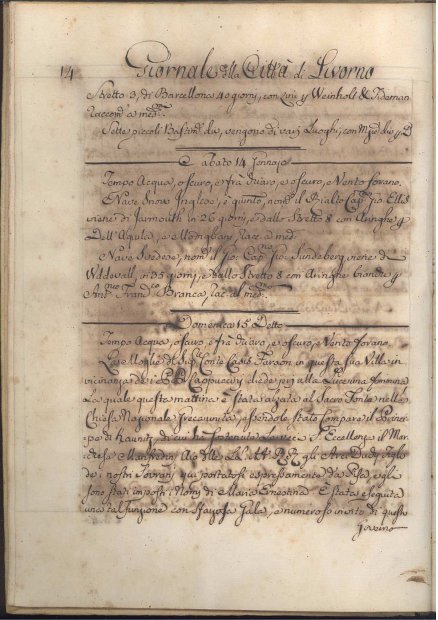 14 Giornale della Città di Livorno
Stretto 3, di Barcellona 40 giorni, con Vini p Weinholt &
raccom.
Sette piccoli Bastim. da, vengono di varj Luoghi, con
Sabato 14 Gennajo
Tempo Acqua, oscuro, e frà chiaro, e oscuro, e Vento forano.
È Nave Inglese, è giunto, nom. il Rialto Cap. Gio Ellis
viene di Jarmouth in 26 giorni, e dallo Stretto 8 con Aringhe p
Dell'Aquila, e Modigliani, race. a med.
Nave Svedese, nom. il Cap. Gio. Sundeberg, viene di
in 35 giorni, e dallo Stretto 8 con Aringhe p
Ant. Fran. Branca, rac. al med.
Domenica 15 Detto
Tempo Acqua, oscuro, e frà chiaro, e oscuro, e Vento forano.
La Moglie del Sig. Conte in questa sua Villa in
vicinanza dei P.P. Cappuccini, diede alla
La quale questa mattina è stata alzata al Sacro Fonte nella
Chiesa Nazionale Grecaunita, essendole stato Compare il Princi-
pe di Kaunitz, di cui hà sostenuta le veci S. Eccellenza il Mar-
chese Manfredini le LL. AA. RR. gli Arciduchi Figli
de nostri Sovrani, qui portatosi espressamente da Pisa, e gli
sono stati imposti i Nomi di Maria Ernestina. È stata eseguita
una tal Funzione con Gala, e numeroso invito di questa